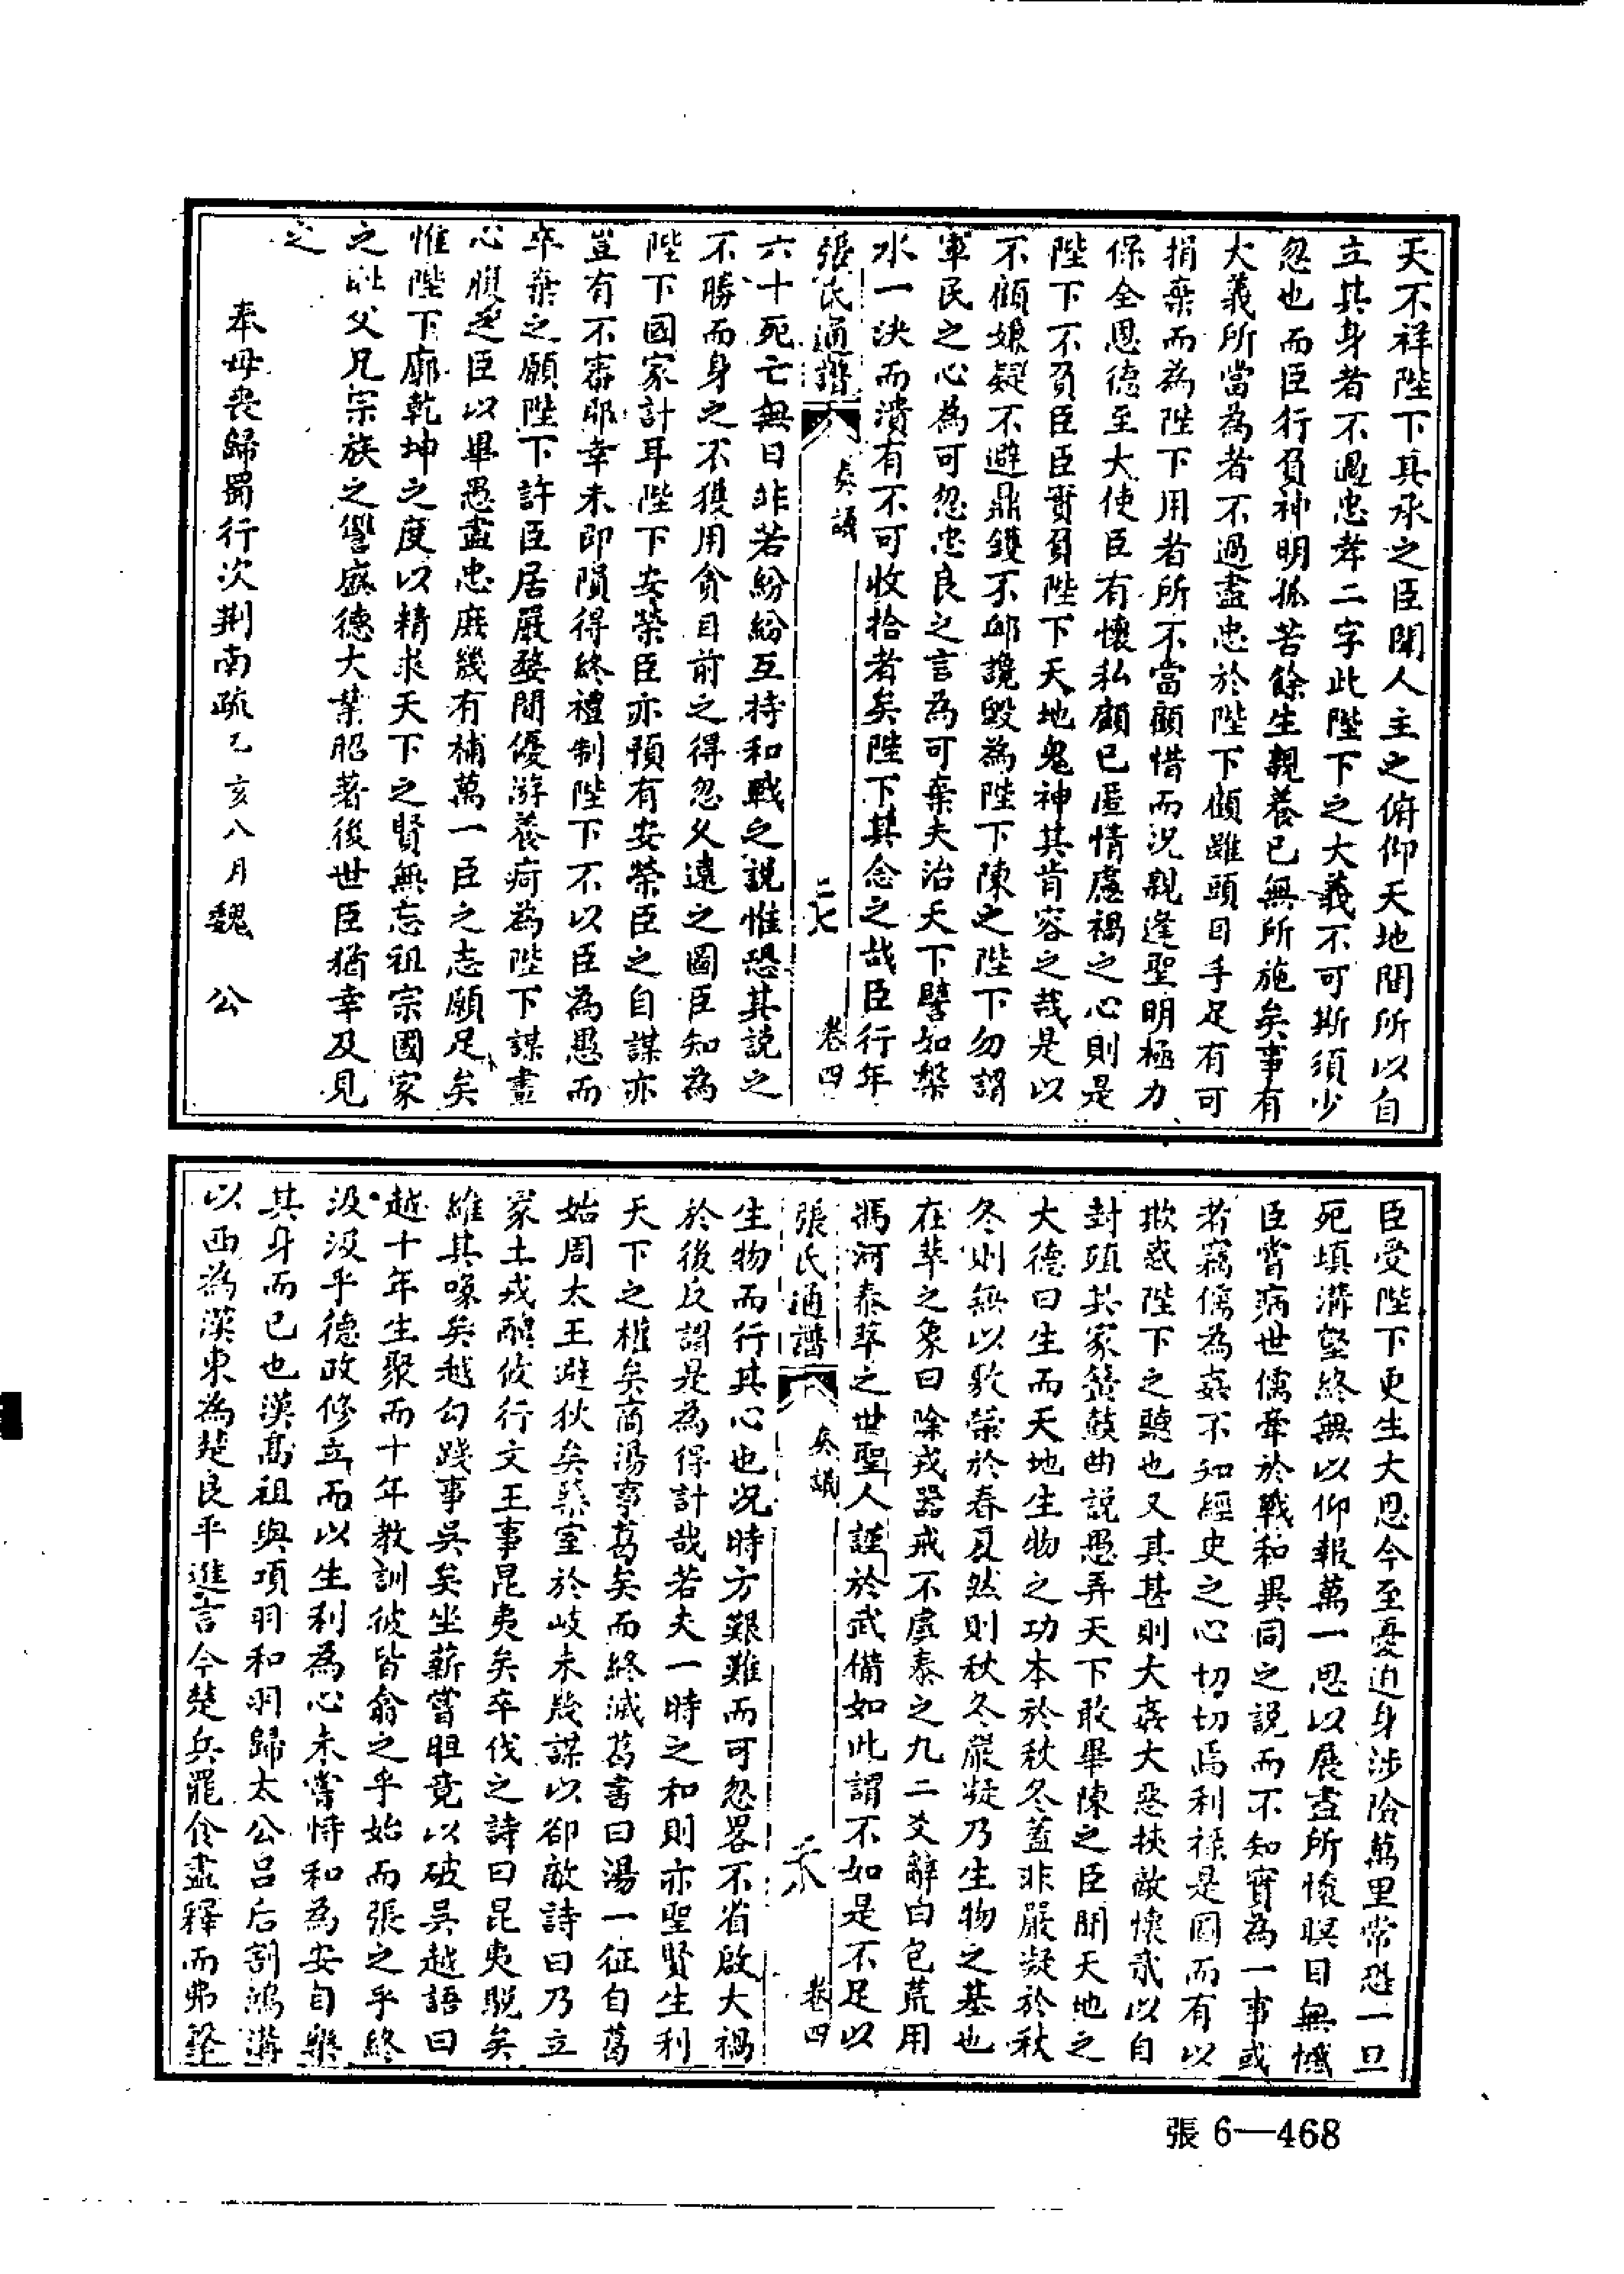 天不祥陛下其承之臣聞人主之俯仰天地間所以自
立其身者不過忠孝二字此陛下之大義不可斯須少
忽也而臣行負神明孤苦餘生親養已無所施矣事有
大義所當為者不過盡忠於陛下顧雖頭目手足有可
捐棄而為陛下用者所不當顧惜而況親逢聖明極力
保全恩德至大使臣有懷私顧已匿情慮禍之心則是
陛下不負臣臣實負陛下天地鬼神其肯容之哉是以
不顧嫌疑不避鼎鑊不卹讒毀為陛下陳之陛下勿謂
軍民之心為可忽忠良之言為可棄夫治天下譬如槃
水一決而潰有不可收拾者矣陛下其念之哉臣行年
張氏通譜 奏議 二七 卷四
六十死亡無日非若紛紛互持和戰之說惟恐其說之
不勝而身之不獲用貪目前之得忽久遠之圖臣知為
陛下國家計耳陛下安榮臣亦預有安榮臣之自謀亦
豈有不審耶幸未即隕得終禮制陛下不以臣為愚而
卒棄之願陛下許臣居嚴婺間優游養疴為陛下謀畫
心腹之臣以畢愚盡忠庶幾有補萬一臣之志願足矣
惟陛下廓乾坤之度以精求天下之賢無忘祖宗國家
之恥父兄宗族之讐盛德大業昭著後世臣猶幸及見
之
奉母喪歸蜀行次荆南疏乙亥八月魏 公
臣受陛下更生大恩今至憂迫身涉險萬里常恐一旦
死填溝壑終無以仰報萬一思以展盡所懷瞑目無憾
臣嘗病世儒牽於戰和異同之說而不知實為一事或
者竊儒為姦不知經史之心切切焉利祿是圖而有以
欺惑陛下之聽也又其甚則大姦大惡挾敵懷貳以自
封殖其家簧鼓曲說愚弄天下敢畢陳之臣聞天地之
大德曰生而天地生物之功本於秋冬蓋非嚴凝於秋
冬則無以敷榮於春夏然則秋冬嚴凝乃生物之基也
在萃之象曰除戎器戒不虞泰之九二爻辭曰包荒用
馮河泰萃之世聖人謹於武備如此謂不如是不足以
張氏通譜 奏議 二八 卷四
生物而行其心也況時方艱難而可忽畧不省啟大禍
於後反謂是為得計哉若夫一時之和則亦聖賢生利
天下之權矣商湯事葛矣而終滅葛書曰湯一征自葛
始周太王避狄矣築室於岐未幾謀以卻敵詩曰乃立
冢土戎醜攸行文王事昆夷矣卒伐之詩曰昆夷駾矣
維其喙矣越勾踐事吳矣坐薪嘗胆竟以破吳越語曰
越十年生聚而十年教訓彼皆翕之乎始而張之乎終
汲汲乎德政修立而以生利為心未嘗恃和為安自樂
其身而已也漢高祖與項羽和羽歸太公呂后割鴻溝
以西為漢東為楚良平進言今楚兵罷食盡釋而弗擊
張 6—468